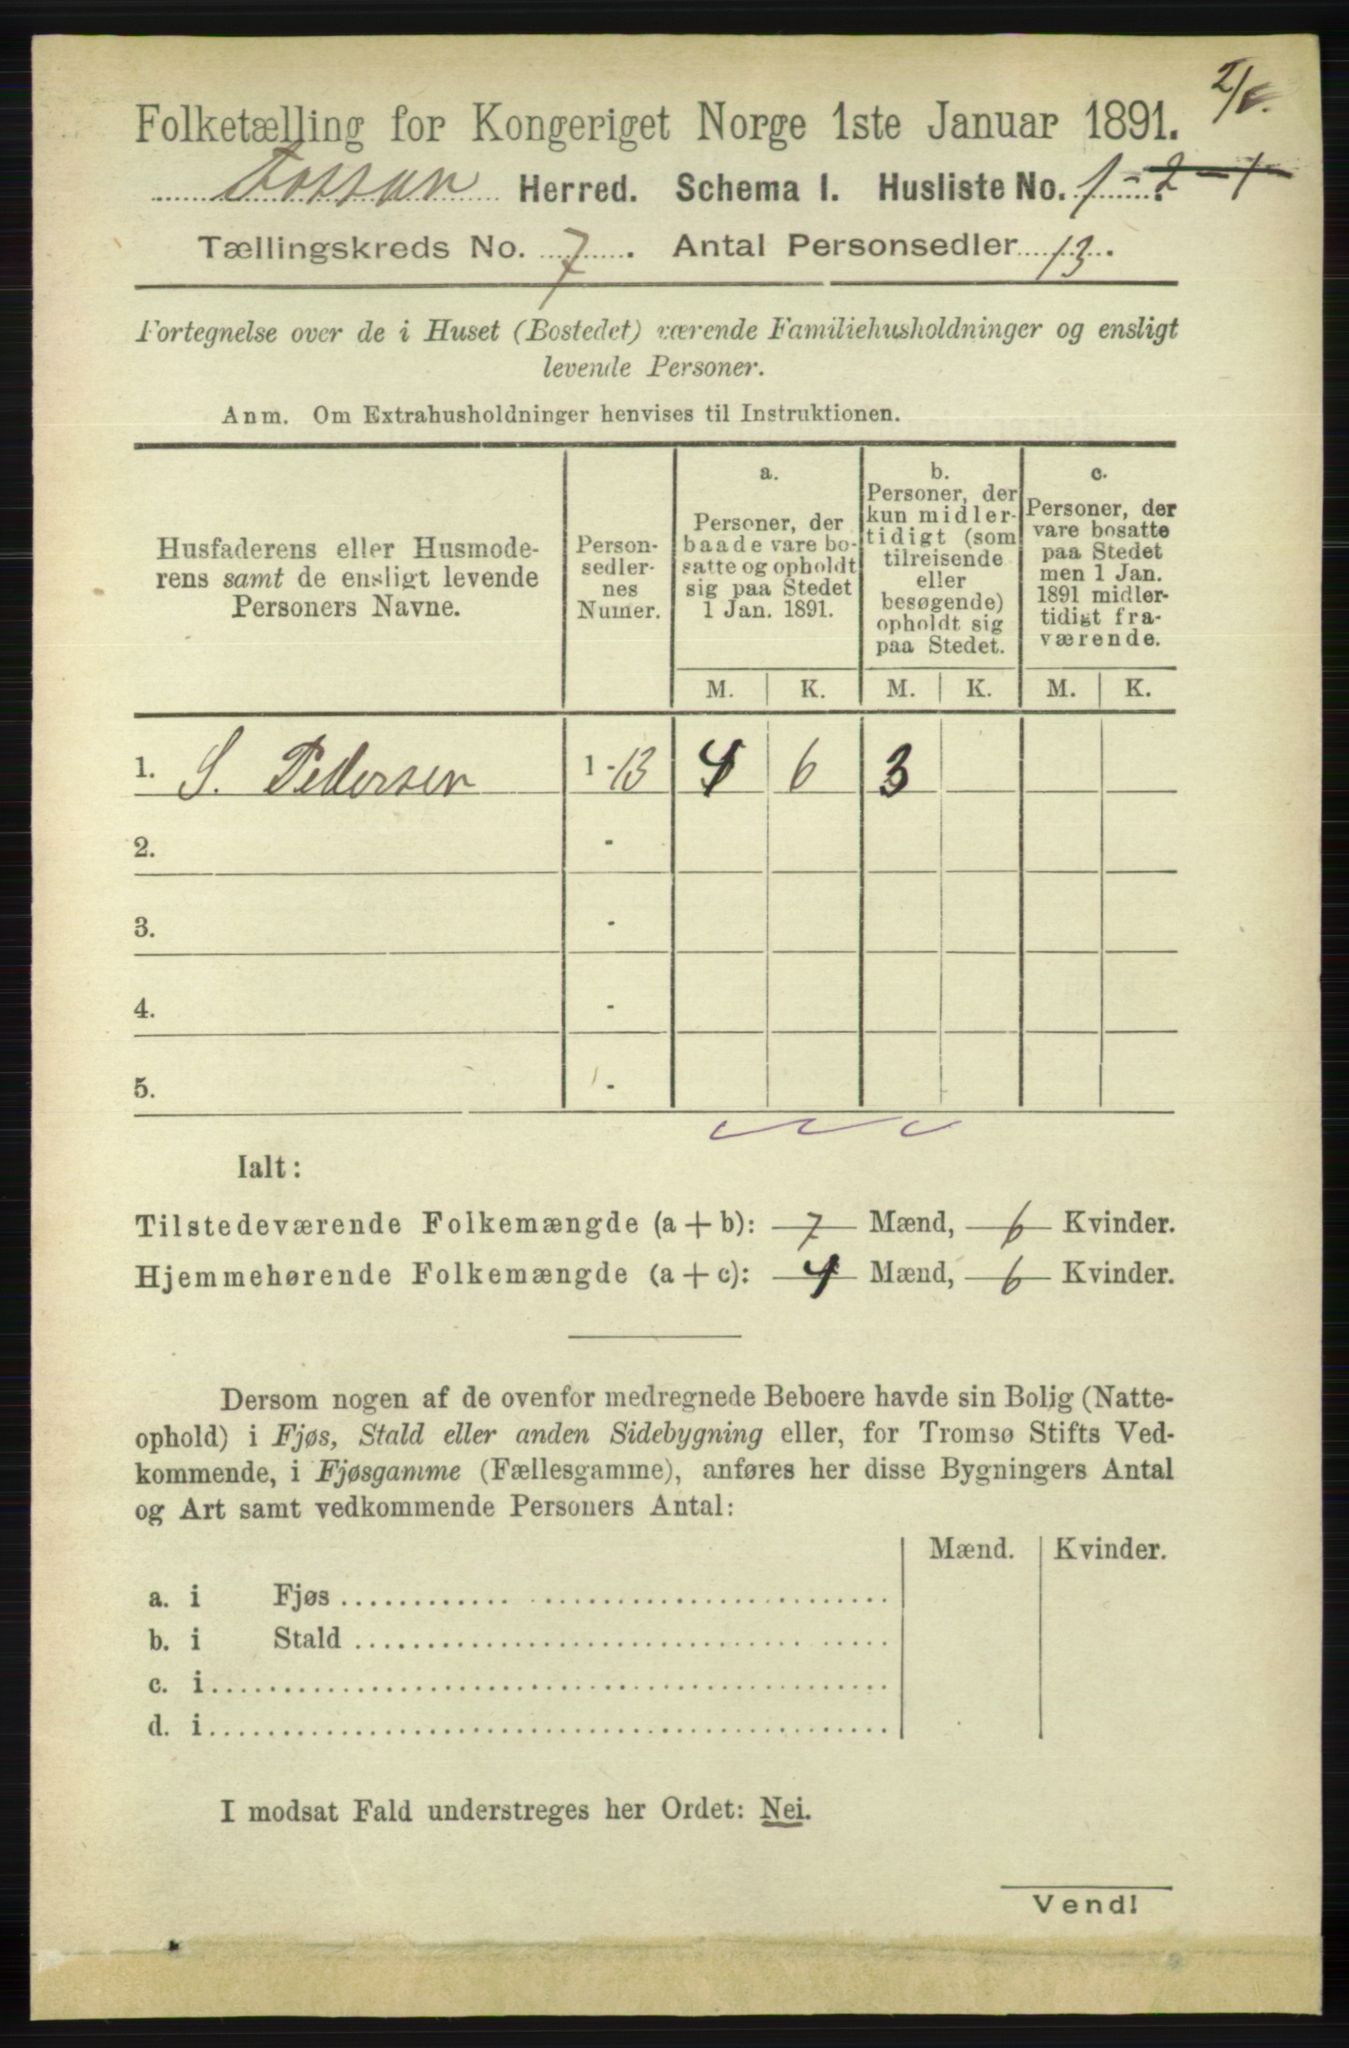 Folketælling for Kongeriget Norge 1ste Januar 1891.
Herred. Schema I. Husliste No. 1
Tællingskreds No. 7. Antal Personsedler 13.
Fortegnelse over de i Huset (Bostedet) værende Familiehusholdninger og ensligt
levende Personer.
Anm. Om Extrahusholdninger henvises til Instruktionen.
Husfaderens eller Husmode-
rens samt de ensligt levende
Personers Navne.
Person-
sedler-
nes
Numer.
a.
Personer, der
baade vare bo-
satte og opholdt
sig paa Stedet
1 Jan. 1891.
b.
Personer, der
kun midler-
tidigt (som
tilreisende
eller
besøgende)
opholdt sig
paa Stedet.
c.
Personer, der
vare bosatte
paa Stedet
men 1 Jan.
1891 midler-
tidigt fra-
værende.
M. K. M. K. M. K.
1. S. Pedersen 1 - 13 4 6 3
2. -
3. -
4. -
5. -
Ialt:
Tilstedeværende Folkemængde (a + b): 7 Mænd, 6 Kvinder.
Hjemmehørende Folkemængde (a + c): 4 Mænd, 6 Kvinder.
Dersom nogen af de ovenfor medregnede Beboere havde sin Bolig (Natte-
ophold) i Fjøs, Stald eller anden Sidebygning eller, for Tromsø Stifts Ved-
kommende, i Fjøsgamme (Fællesgamme), anføres her disse Bygningers Antal
og Art samt vedkommende Personers Antal:
Mænd. Kvinder.
a. i Fjøs
b. i Stald
c. i
d. i
I modsat Fald understreges her Ordet: Nei.
Vend!